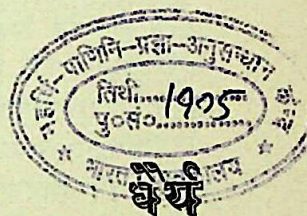 महर्षि-पाणिनि-प्रज्ञा-अनुसन्धान केन्द्र
तिथी.....1905
पु०सं०
धैर्य